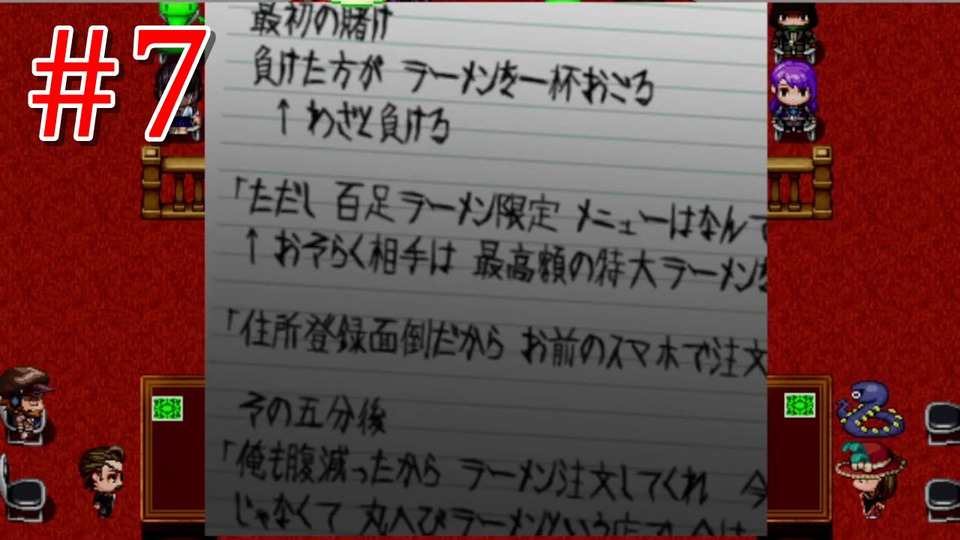 #7
最初の賭け
負けた方が ラーメンを一杯おごる
↑ わざと負ける
「ただし 百足ラーメン限定 メニューはなんで
↑ おそらく相手は 最高額の特大ラーメンを
「住所登録面倒だから お前のスマホで注文
その五分後
「俺も腹減ったから ラーメン注文してくれ 今
じゃなくて 丸へびラーメンという店で